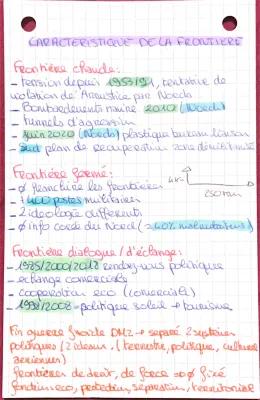 CARACTERISTIQUE DE LA FRONTIERE
Frontière chaude:
- tension depuis 1953/91, tentative de
violation de l'Armistice par Nord
- Bombardements navire 2010 (Nord)
- tunnels d'agression
- juin 2020 (Nord) plastique bureau liaison
- Sud plan de recuperation zone démilitarisé
Frontière fermé:
- Ø franchire les frontières
4km
250km
- + 400 postes militaires
- 2 ideologie differents
- Ø info corée du Nord (
Frontière dialogue / d'échange:
- 1985/2000/2018 rendez-vous politique
- echange comerciales
- cooperation eco (comerciale)
- 1998/2008 - politique soleil → tourisme
Fin guerre froide DMZ → separé 2 systèmes
politiques / 2 ideaux. (terrestre, politique, culturelle
aeriennes)
frontières de droit, de force => Ø fixé
fonction eco, protection, séparation, territorial